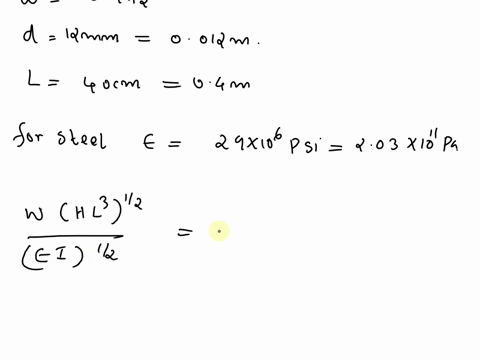 d = 12mm = 0.012m.
L = 40cm = 0.4m
for steel E = 29×10⁶ Psi = 2.03 ×10¹¹ Pa
W (HL³)^1/2 / (EI)^1/2 = .